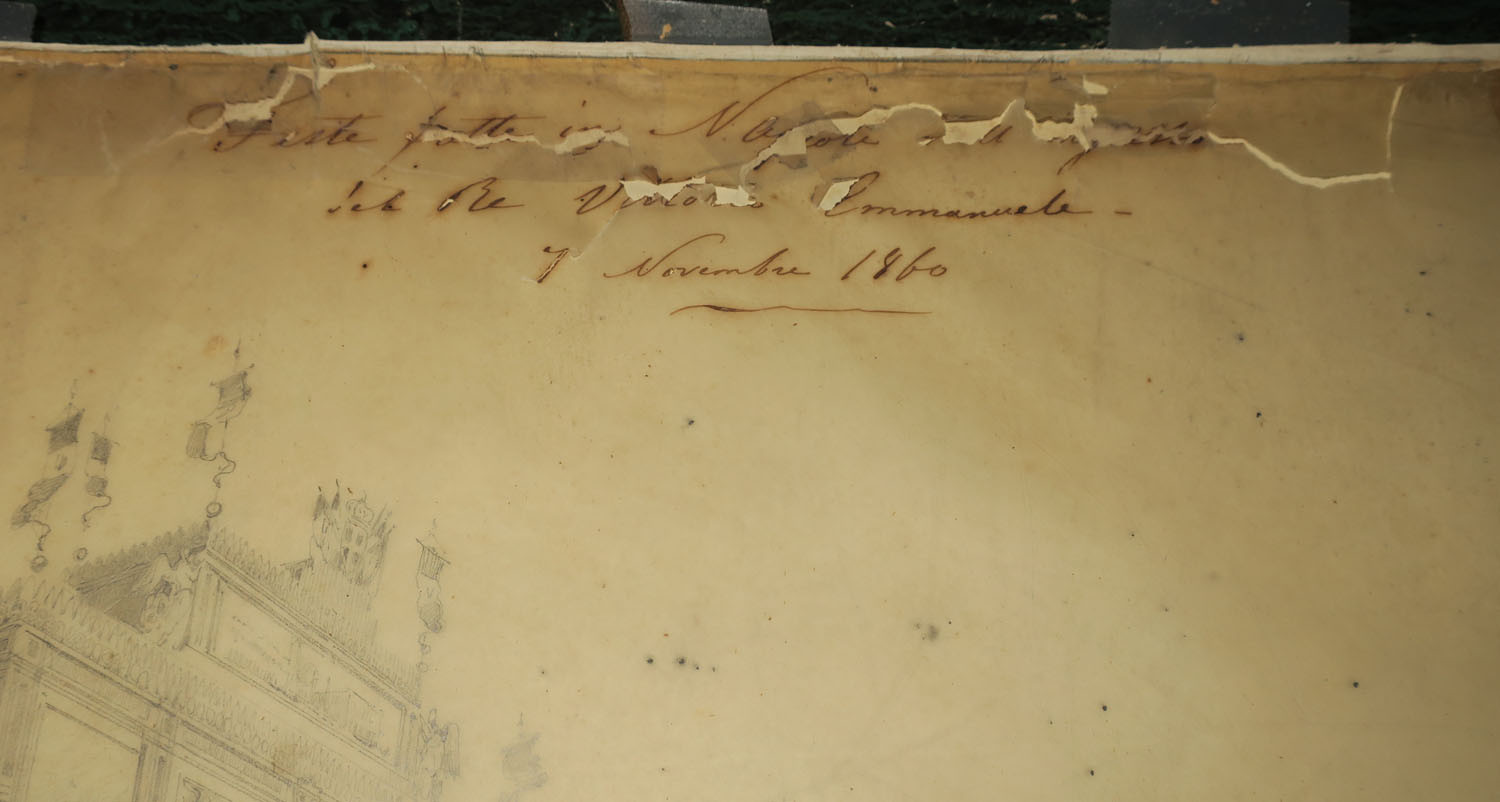 Feste fatte in Napole nell' ingresso
del Re Vittorio Emmanuele -
7 Novembre 1860